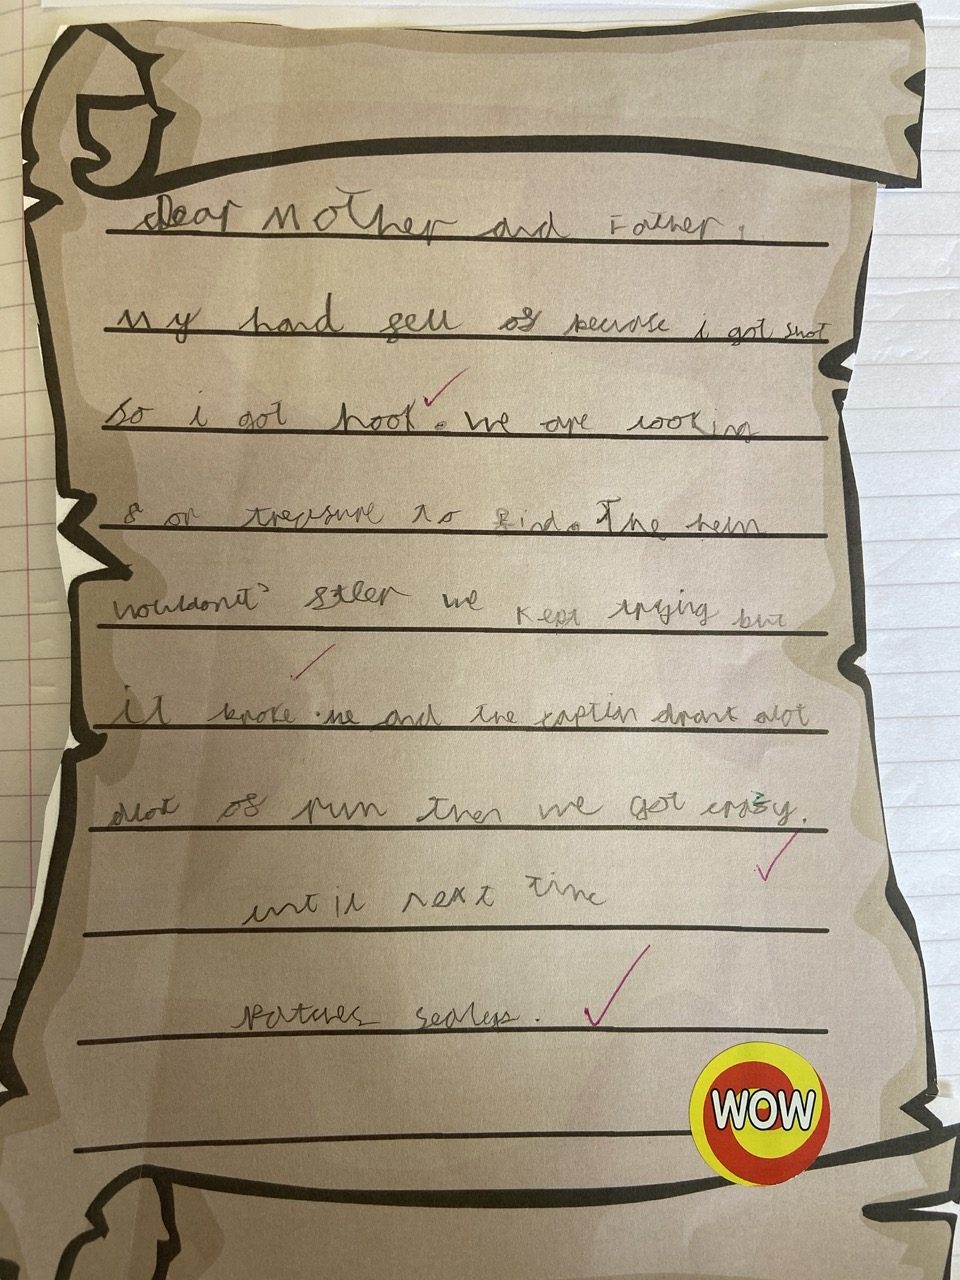 Dear Mother and Father,
My hand fell of because i got shot
so i got hook. we are looking
for treasure to find. The helm
wouldont' steer we kept trying but
it broke. me and the captin drank alot
alot of rum then we got crazy.
until next time
Patches sealegs.
WOW